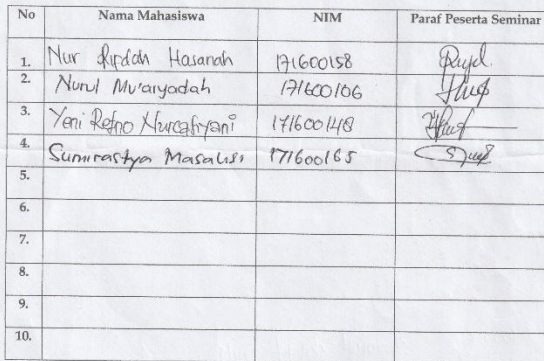 No Nama Mahasiswa NIM Paraf Peserta Seminar
1. Nur Rifdah Hasanah 171600158
2. Nurul Mu'aryadah 171600106
3. Yeni Retno Nurcahyani 171600148
4. 171600165
5.
6.
7.
8.
9.
10.